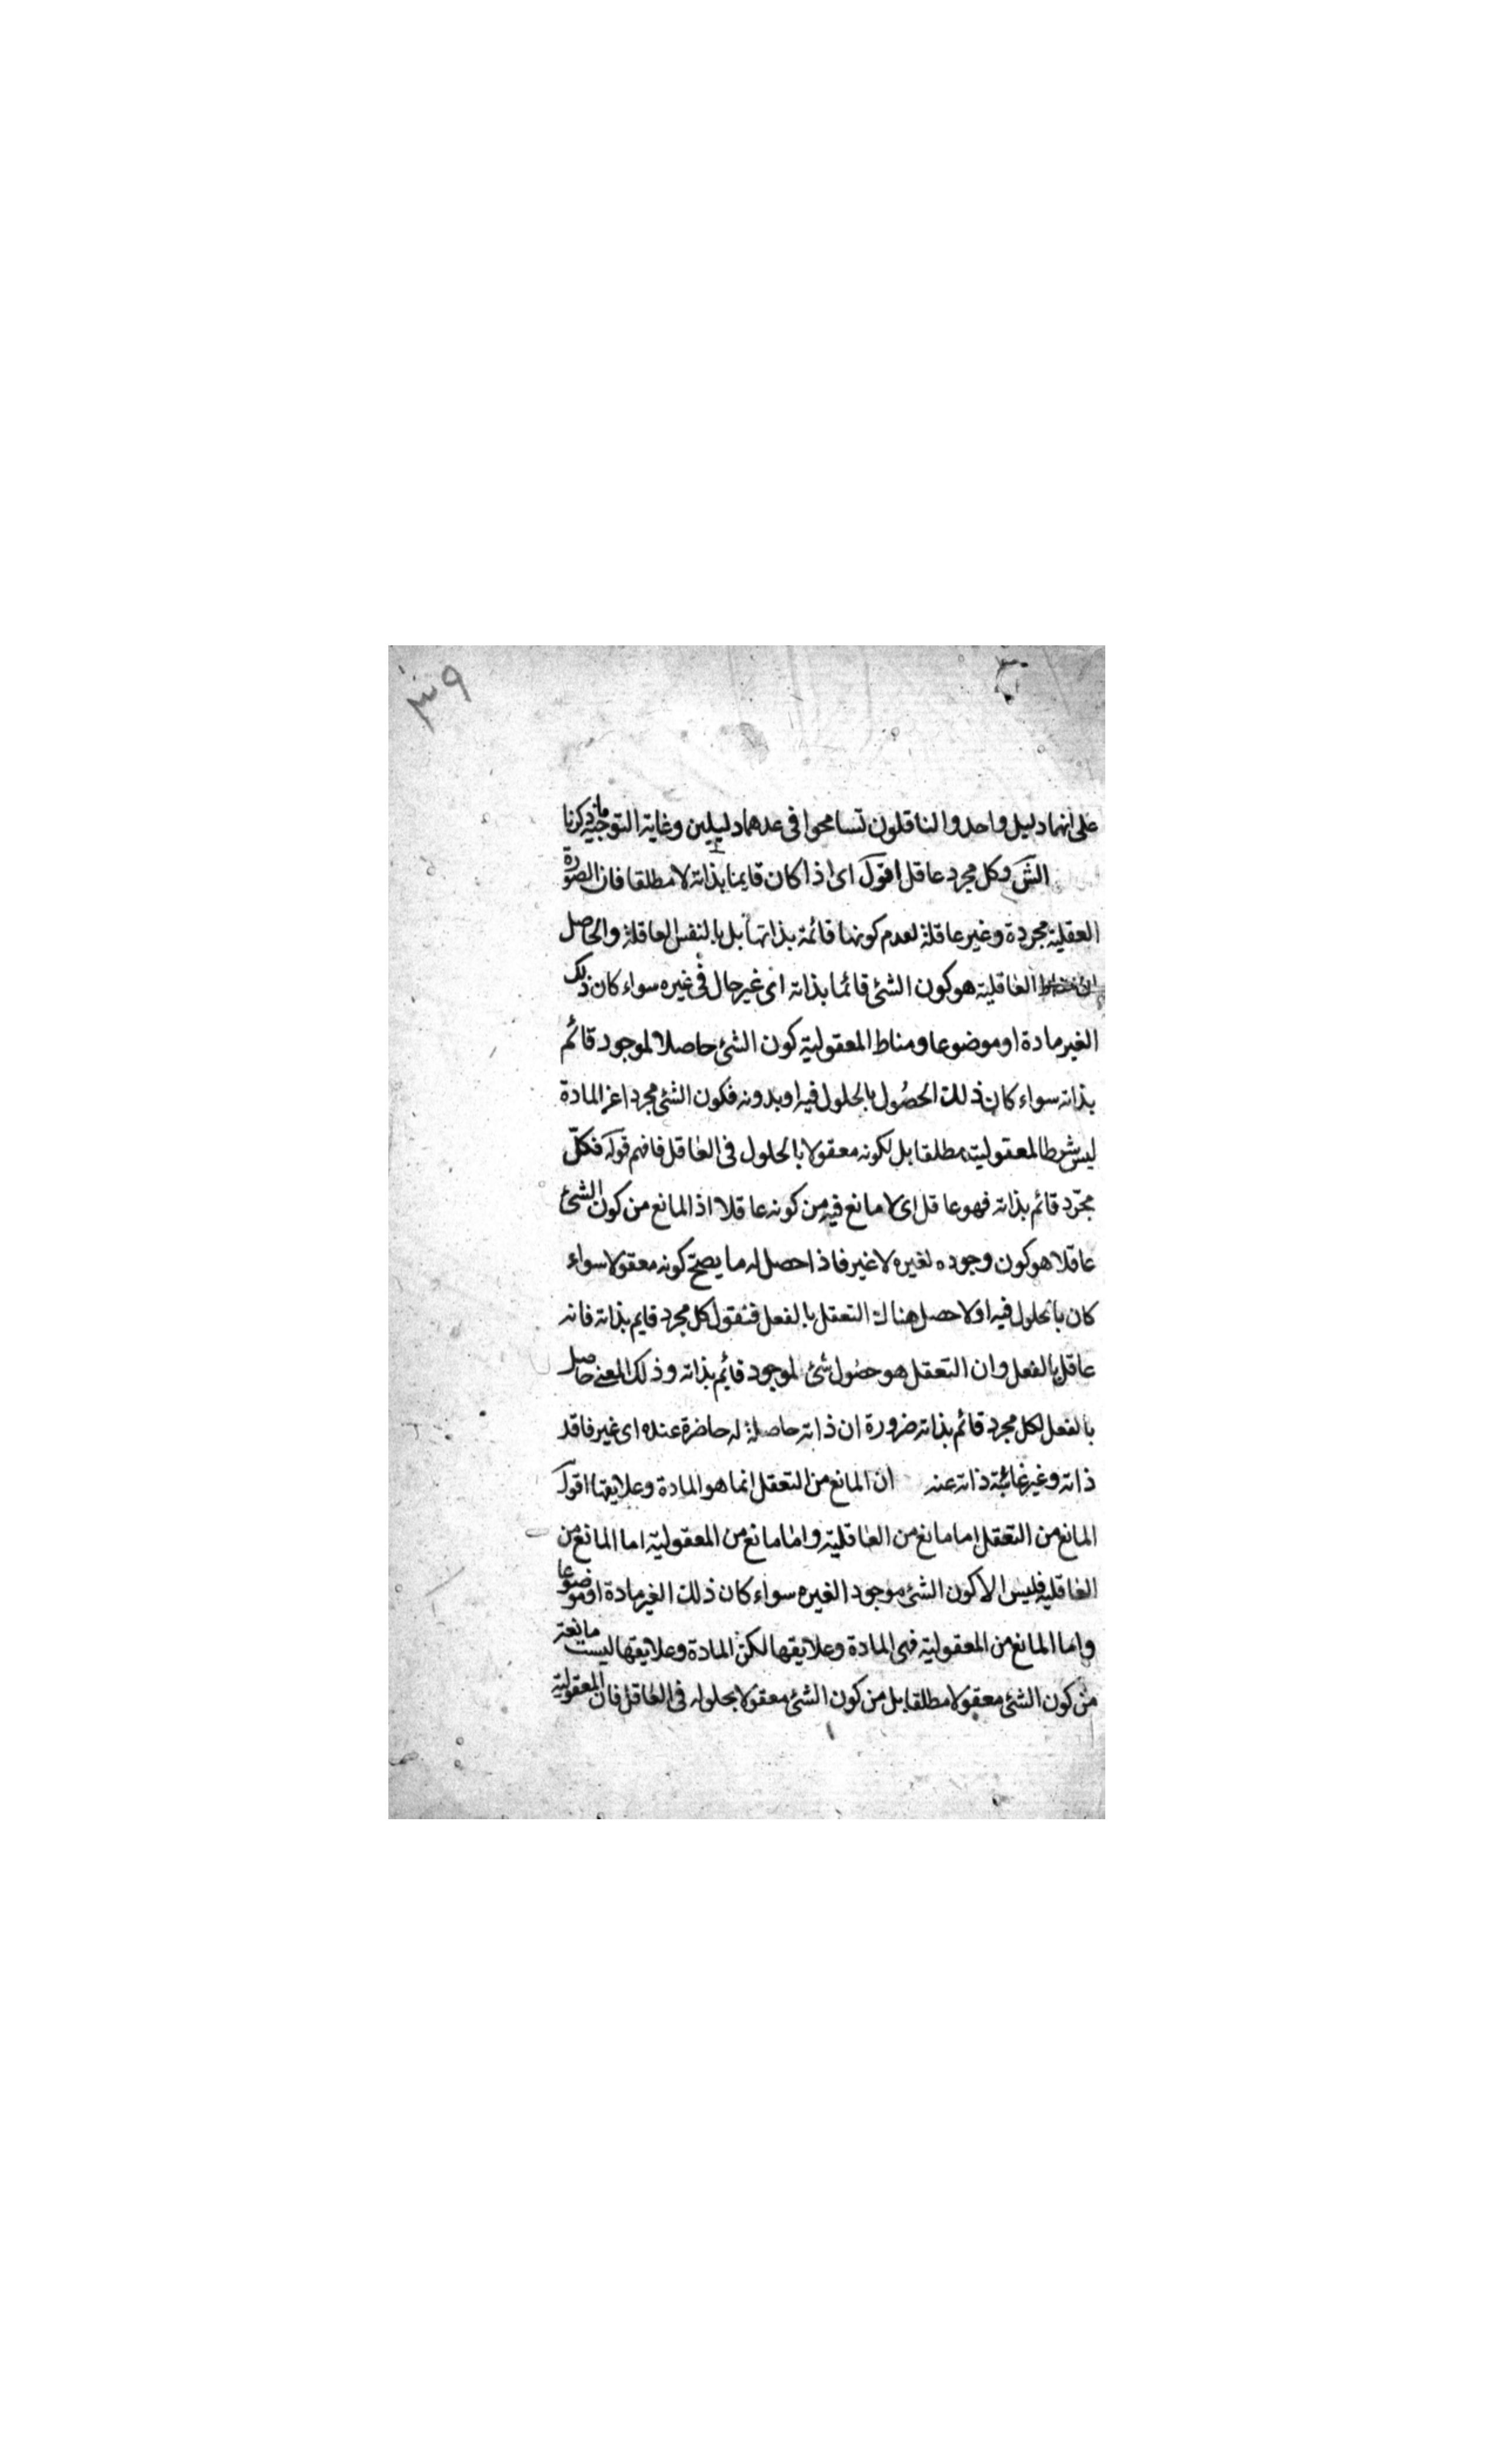 ٣٩
على انهما دليل واحد والناقلون تسامحوا في عدهما دليلين وغاية التوجيه ما ذكرنا
الش وكل مجرد عاقل اقول اى اذا كان قايما بذاته لا مطلقا فان الصورة
العقلية مجردة وغير عاقلة لعدم كونها قائمة بذاتها بل بالنفس العاقلة والحاصل
العاقلية هو كون الشئ قائما بذاته اى غير حال فى غيره سواء كان ذلك
الغير مادة او موضوعا ومناط المعقولية كون الشئ حاصلا لموجود قائم
بذاته سواء كان ذلك الحصول بالحلول فيه او بدونه فكون الشئ مجردا عن المادة
ليس شرطا لمعقوليته مطلقا بل لكونه معقولا بالحلول فى العاقل فافهم قوله فكلّ
مجرّد قائم بذاته فهو عاقل اى لا مانع فيه من كونه عاقلا اذ المانع من كون الشئ
عاقلا هو كون وجوده لغيره لا غير فاذا حصل له ما يصح كونه معقولا سواء
كان بالحلول فيه اولا حصل هناك التعقل بالفعل فنقول كل مجرد قايم بذاته فانه
عاقل بالفعل وان التعقل هو حصول شئ لموجود قائم بذاته وذلك المعنى حاصل
بالفعل لكل مجرد قائم بذاته ضرورة ان ذاته حاصلة له حاضرة عنده اى غير فاقد
ذاته وغير غائبة ذاته عنه ان المانع من التعقل انما هو المادة وعلايقها اقول
المانع من التعقل اما مانع من العاقلية واما مانع من المعقولية اما المانع من
العاقلية فليس الا كون الشئ موجودا لغيره سواء كان ذلك الغير مادة او موضوعا
واما المانع من المعقولية فهى المادة وعلايقها لكن المادة وعلايقها ليست مانعة
من كون الشئ معقولا مطلقا بل من كون الشئ معقولا بحلوله فى العاقل فان المعقولية